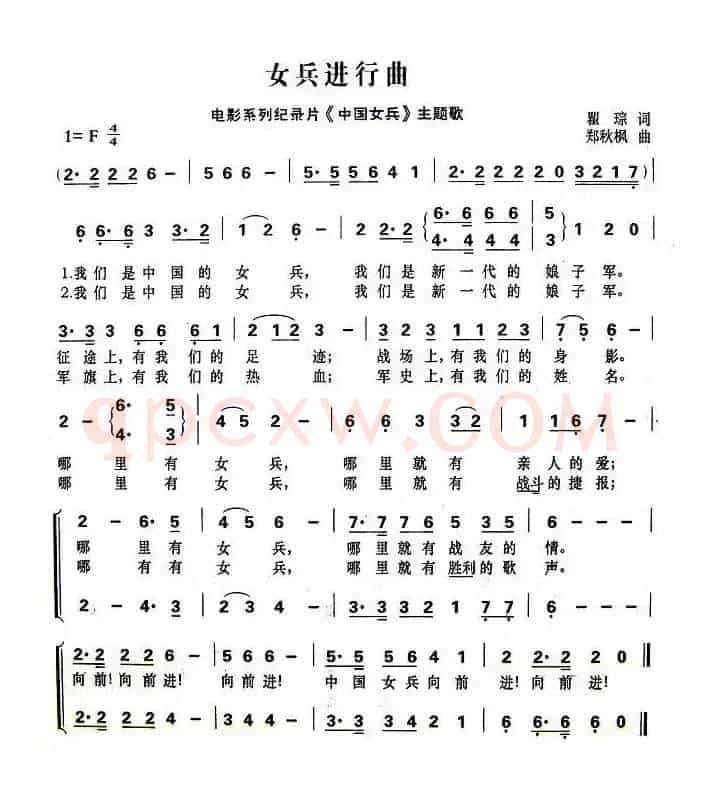 女兵进行曲
电影系列纪录片《中国女兵》主题歌
瞿 琮 词
1= F 4/4
郑秋枫 曲
(2· 2 2 2 6 - | 5 6 6 - | 5· 5 5 6 4 1 | 2· 2 2 2 2 0 3 2 1 7)
6 6· 6 3 3· 2 | 1 2 6 - | 2 2· 2 {6· 6 6 6 | 5 1 2 0
4· 4 4 4 | 3
1.我们是中国的 女 兵, 我们是新一代的 娘子军。
2.我们是中国的 女 兵, 我们是新一代的 娘子军。
3· 3 3 6 6 6 1 | 2 1 2 3 - | 3 2 3 1 1 2 3 | 7 5 6 -
征途上,有我们的 足 迹; 战场上,有我们的 身 影。
军旗上,有我们的 热 血; 军史上,有我们的 姓 名。
2 - {6· 5 | 4 5 2 - | 6 6 3 3 2 | 1 1 6 7 -
4· 3
哪 里 有 女 兵, 哪 里 就 有 亲 人 的 爱;
哪 里 有 女 兵, 哪 里 就 有 战斗的 捷 报;
2 - 6· 5 | 4 5 6 - | 7· 7 7 6 5 3 5 | 6 - -
哪 里 有 女 兵, 哪 里 就 有 战 友 的 情。
哪 有 有 女 兵, 哪 里 就 有 胜利的 歌 声。
2 - 4· 3 | 2 3 4 - | 3· 3 3 2 1 7 7 | 6 - -
2· 2 2 2 6 - | 5 6 6 - | 5· 5 5 6 4 1 | 2 2· 2 2 0
向 前!向 前 进! 向 前 进! 中 国 女 兵 向 前 进!向 前 进!
2· 2 2 2 4 - | 3 4 4 - | 3· 3 3 4 2 1 | 6 6· 6 6 0
qpcxw.COM